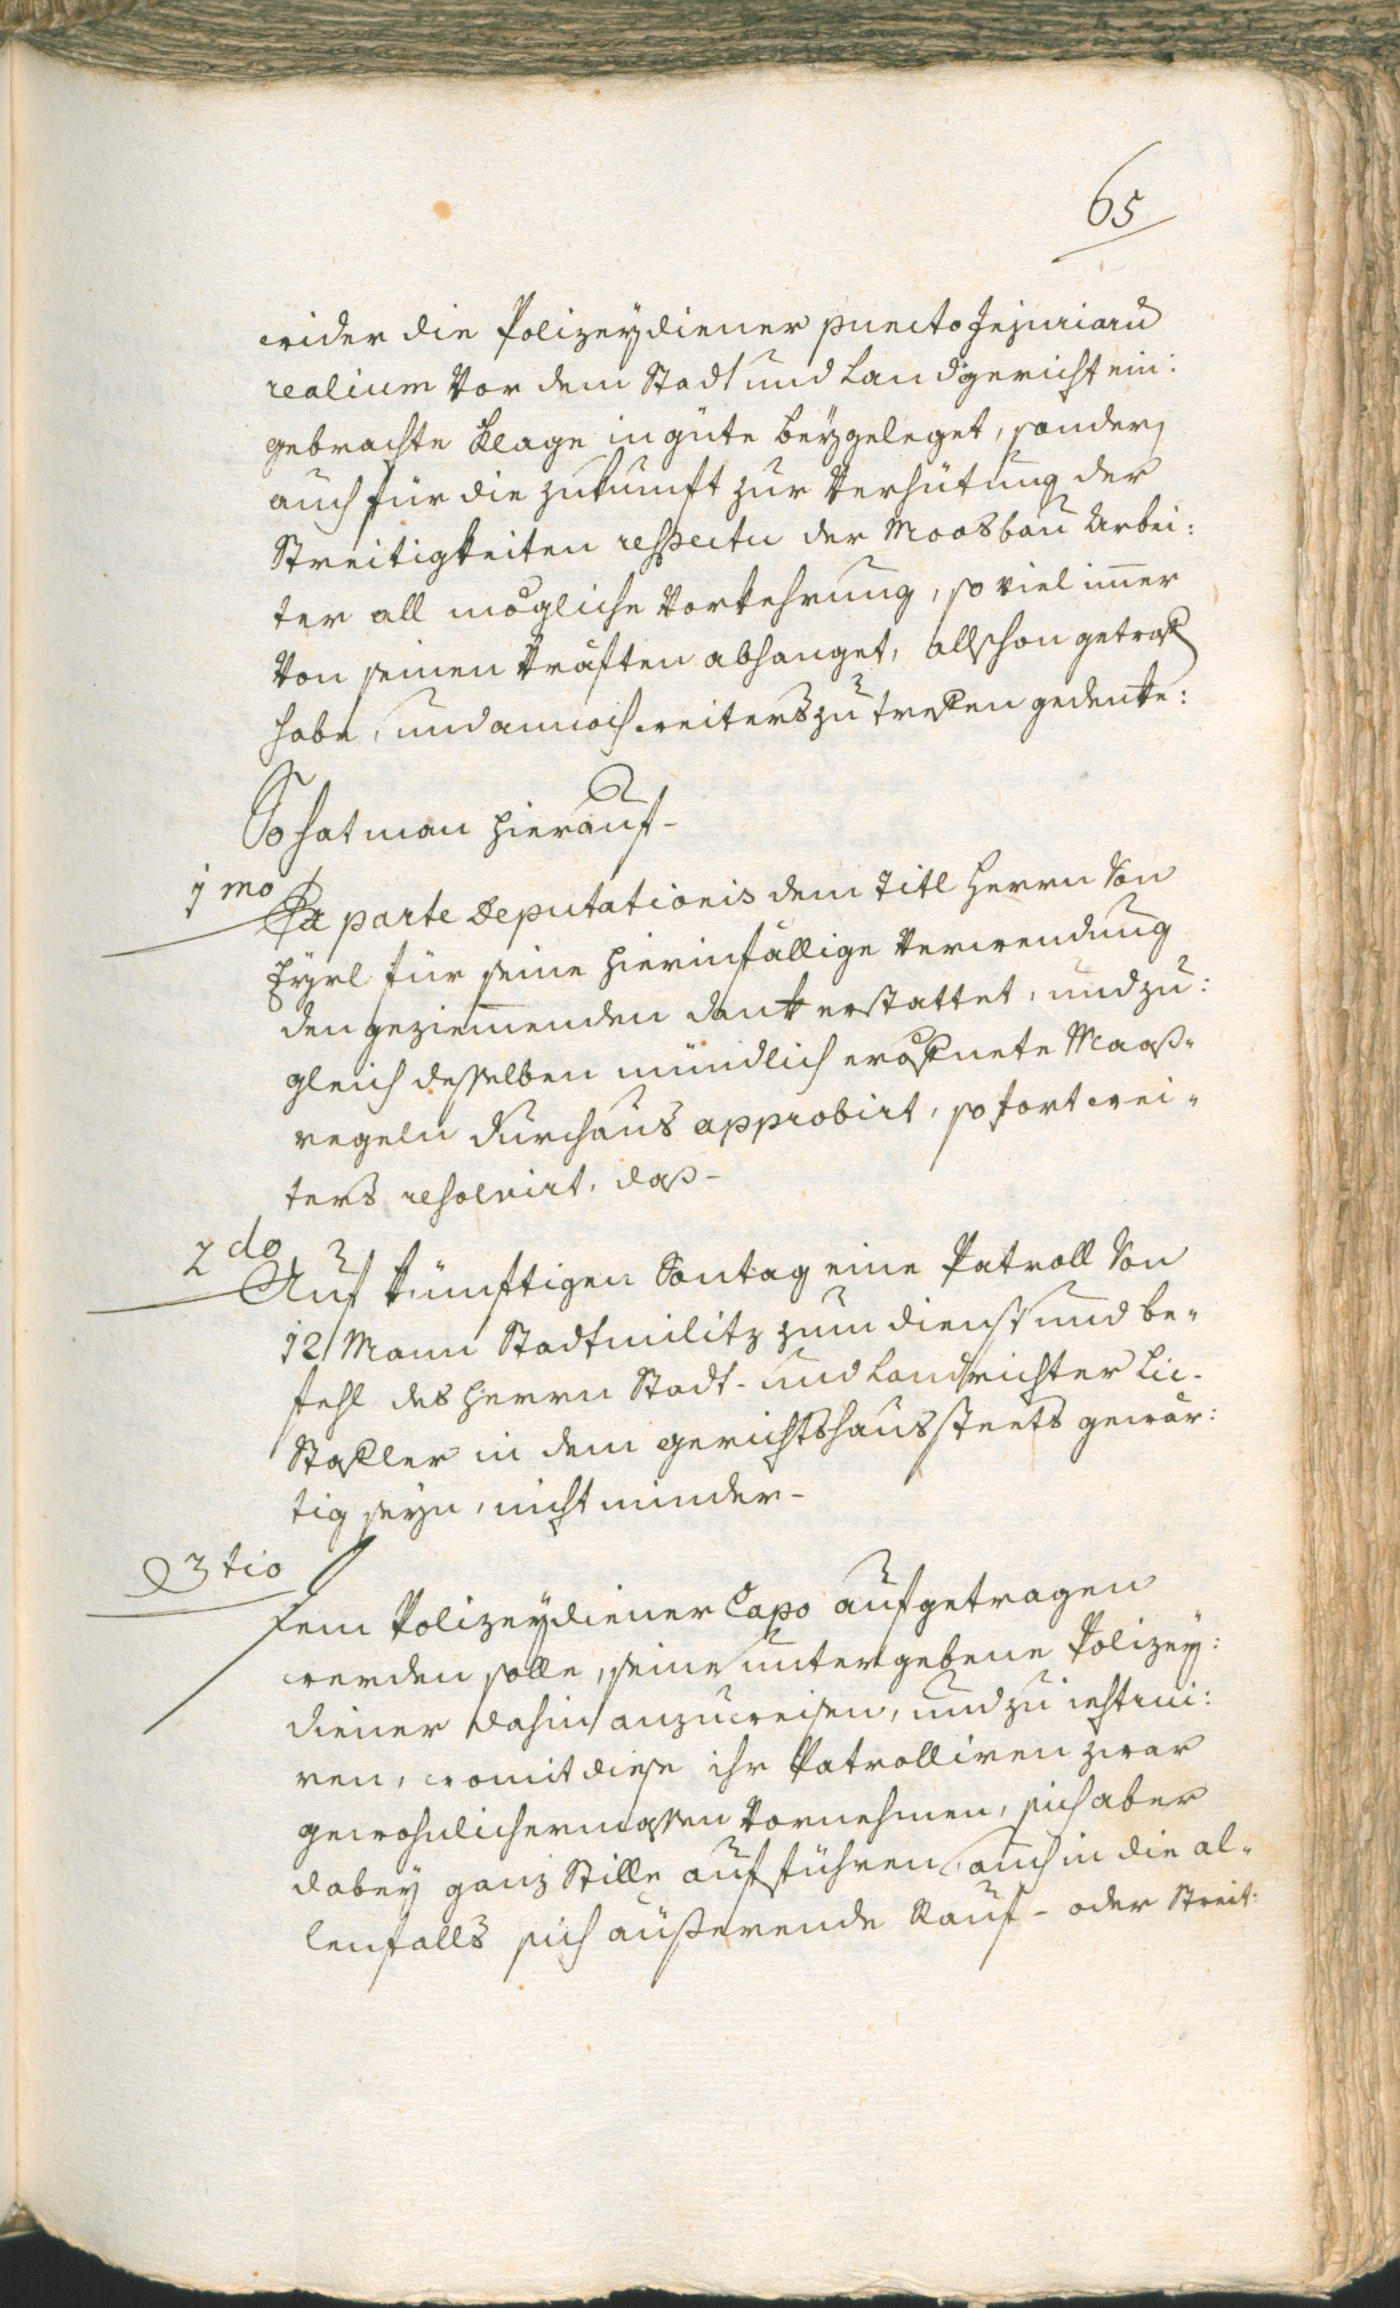 65
wider die Polizeydiener puncto Injuriarũ
realium Vor dem Stadt und Landgericht ein:
gebrachte Klage in güte beygeleget, sondern
auch für die zukunft zur Verhütung der
Streitigkeiten respectu der Moosbau Arbei:
ter all mögliche Vorkehrung, so viel im̅er
Von seinen Kräften abhanget, allschon getroffen
habe, und annoch weiters zu treffen gedenke:
So hat man hierauf-
1mo Ex parte Deputationis dem Titl Herrn Von
Eyrl für seine hierinfällige Verwendung
den geziem̅enden dank erstattet, und zu:
gleich desselben mündlich eröffnete Maaß-
regeln durchaus approbirt, sofort wei-
ters resolvirt, daß-
2do Auf künftigen Sontag eine Patroll Von
12 Mann Stadtmilitz zum dienst und be-
fehl des Herrn Stadt- und Landrichter Lic.
Stoffler in dem gerichtshaus steets gewär:
tig seyn, nicht minder-
3tio Dem Polizeydiener Capo aufgetragen
werden solle, seine untergebene Polizey:
diener dahin anzuweisen, und zu instrui:
ren, womit diese ihr Patrolliren zwar
gewohnlichermassen Vornehmen, sich aber
dabey ganz Stille aufführen, auch in die al-
lenfalls sich äußerende Rauf- oder Streit: